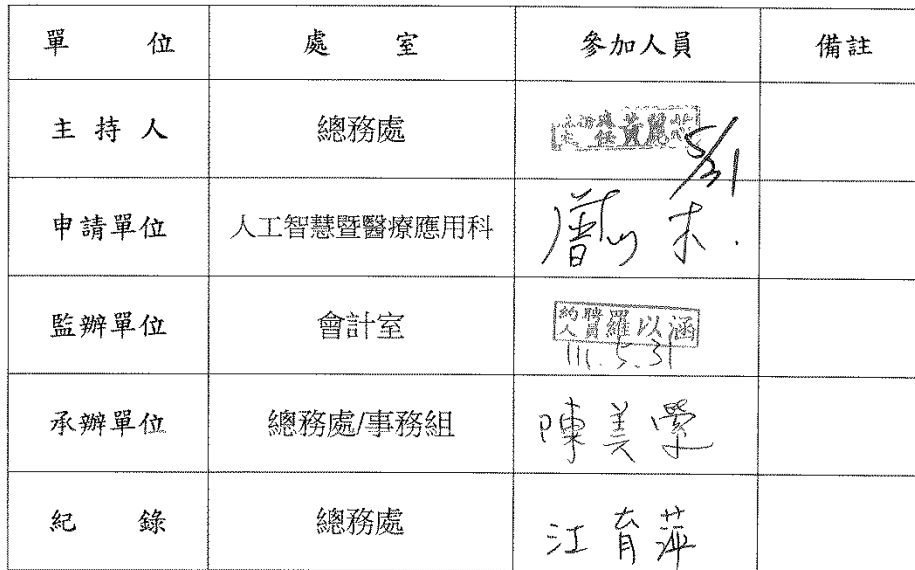 單 位 處 室 參加人員 備註
主 持 人 總務處
5/31
申請單位 人工智慧暨醫療應用科
監辦單位 會計室 約聘人員 羅以涵
111.5.31
承辦單位 總務處/事務組 陳美
紀 錄 總務處 江育萍